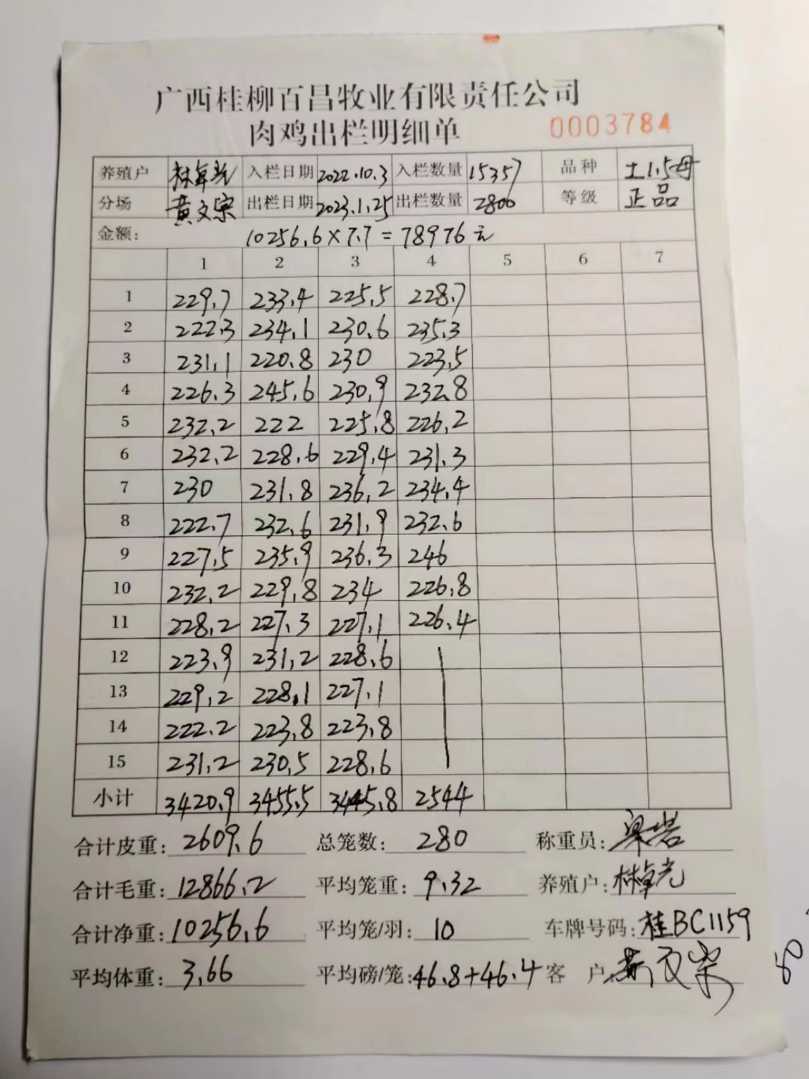 广西桂柳百昌牧业有限责任公司
肉鸡出栏明细单 0003784
养殖户 林卓光 入栏日期 2022.10.3 入栏数量 15357 品种 土1.5母
分场 黄文宗 出栏日期 2023.1.25 出栏数量 2800 等级 正品
金额: 10256.6×7.7=78976元
1 2 3 4 5 6 7
1 229.7 233.4 225.5 228.7
2 222.3 234.1 230.6 235.3
3 231.1 220.8 230 223.5
4 226.3 245.6 230.9 232.8
5 232.2 222 225.8 226.2
6 232.2 228.6 229.4 231.3
7 230 231.8 236.2 234.4
8 222.7 232.6 231.9 232.6
9 227.5 235.9 236.3 246
10 232.2 229.8 234 226.8
11 228.2 227.3 227.1 226.4
12 223.9 231.2 228.6
13 229.2 228.1 227.1
14 222.2 223.8 223.8
15 231.2 230.5 228.6
小计 3420.9 3455.5 3445.8 2544
合计皮重: 2609.6 总笼数: 280 称重员: 梁岩
合计毛重: 12866.2 平均笼重: 9.32 养殖户: 林卓光
合计净重: 10256.6 平均笼/羽: 10 车牌号码: 桂BC1159
平均体重: 3.66 平均磅/笼: 46.8+46.4 客 户: 黄文宗